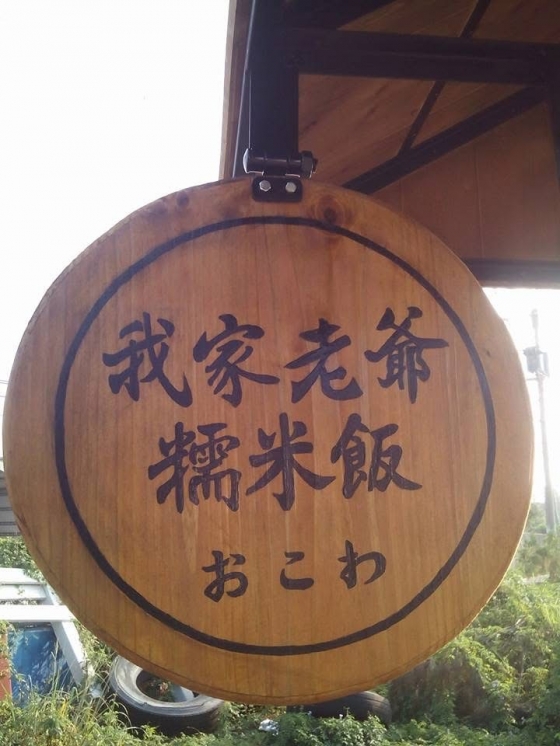 我家老爺
糯米飯
おこわ